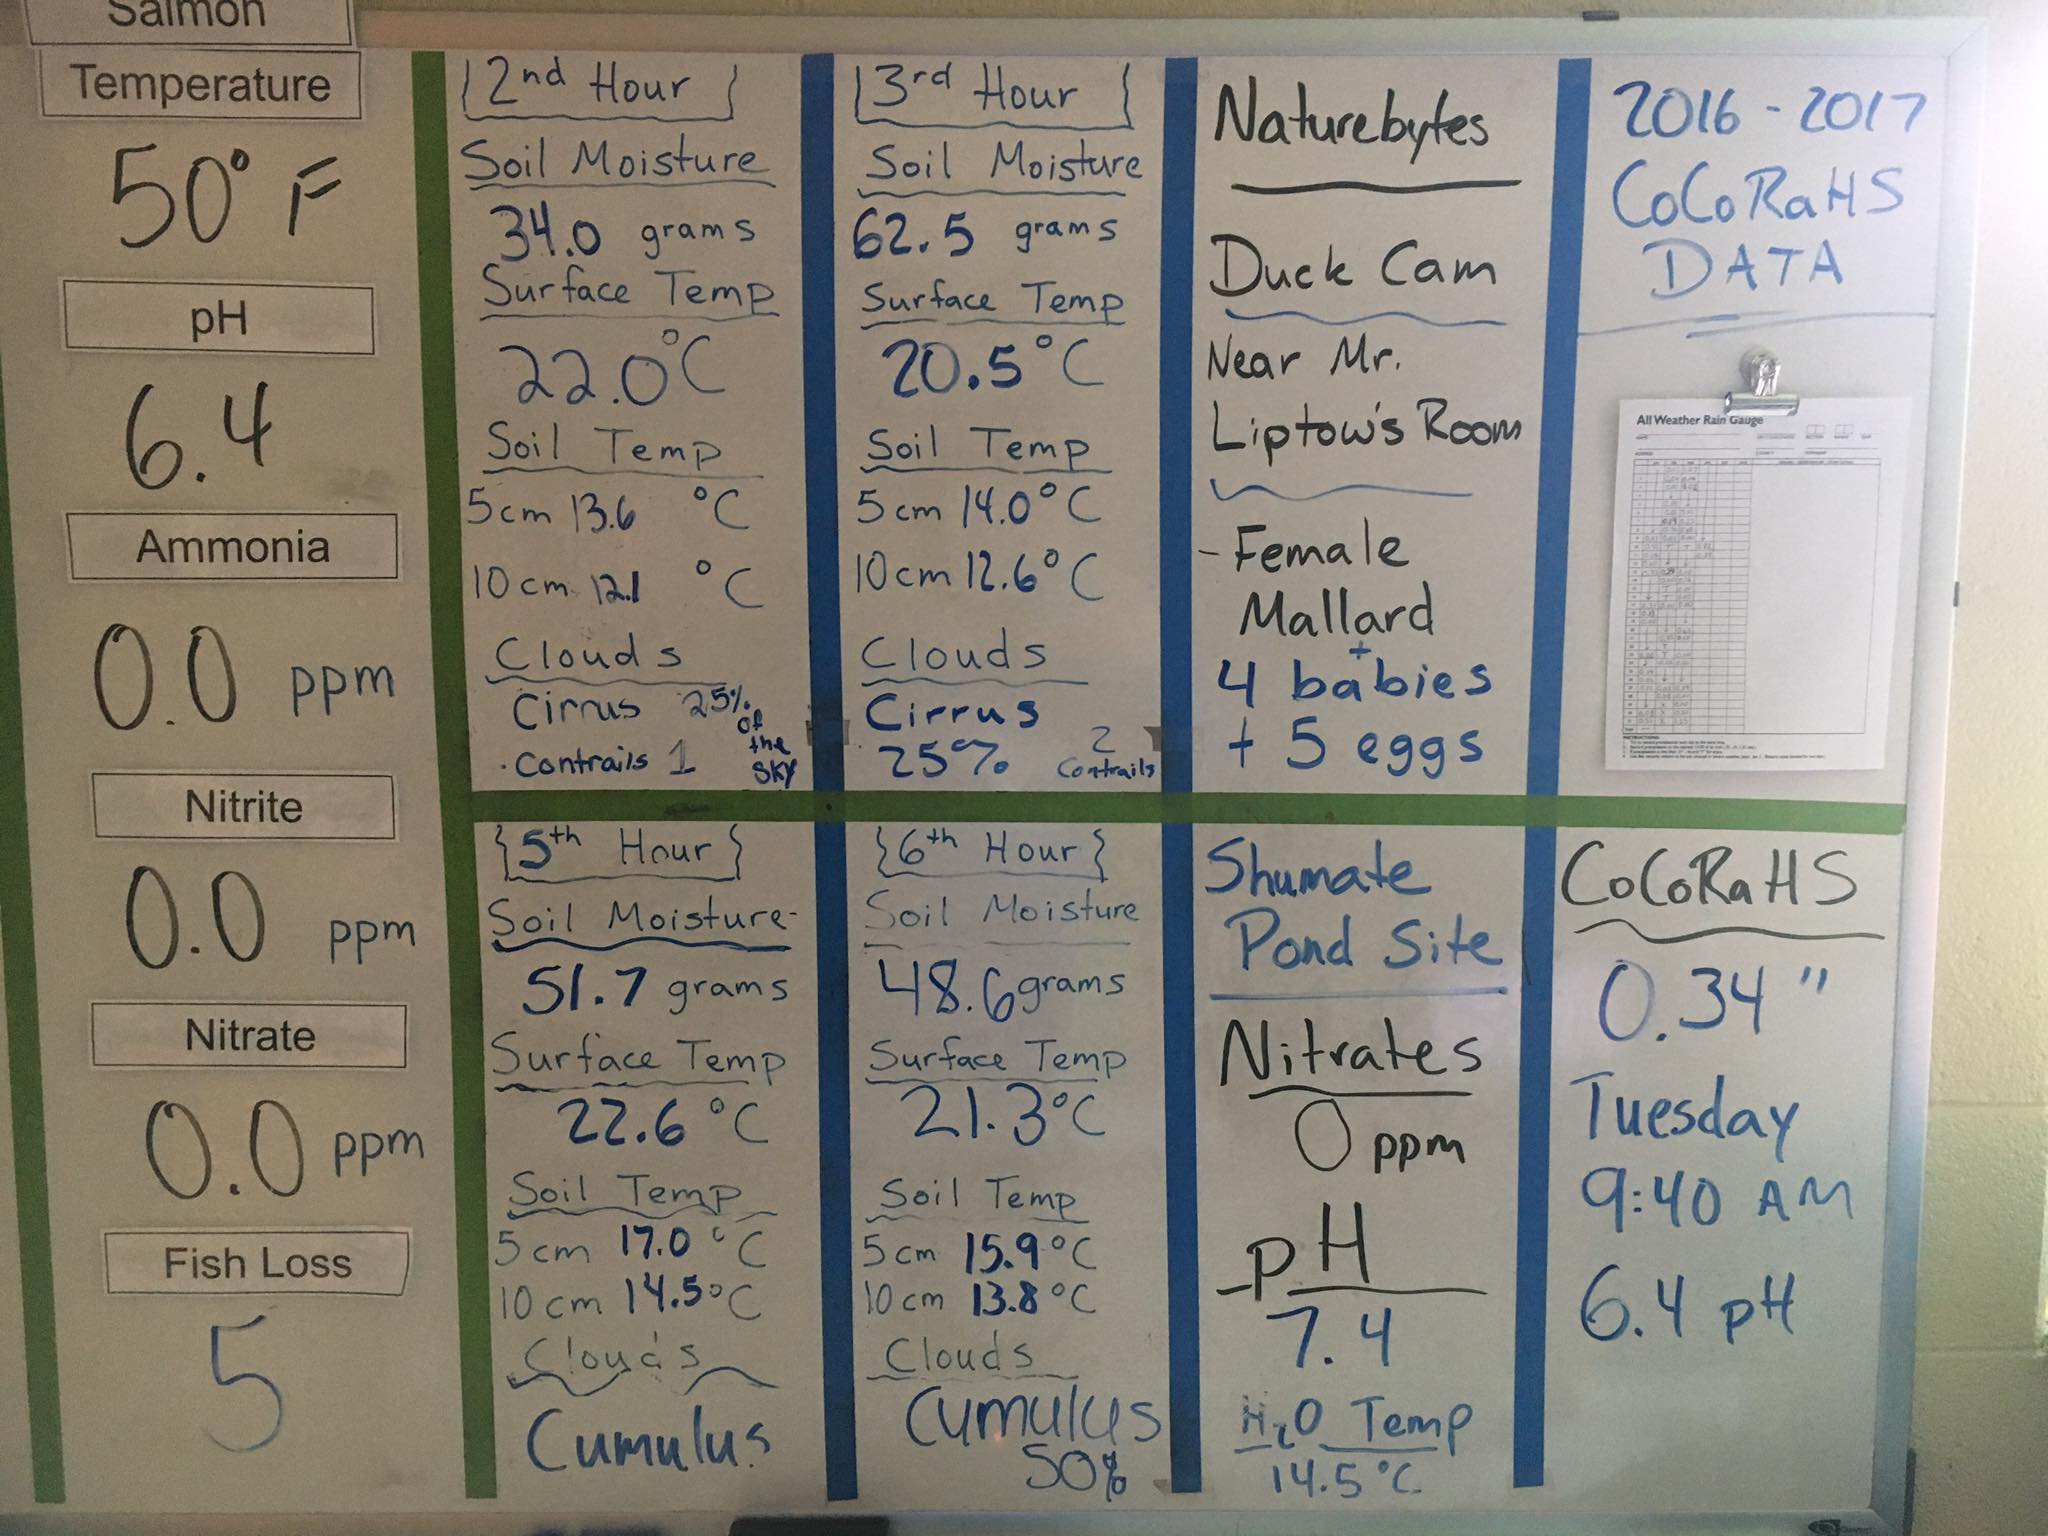 Salmon
Temperature
50° F
pH
6.4
Ammonia
0.0 ppm
Nitrite
0.0 ppm
Nitrate
0.0 ppm
Fish Loss
5
2nd Hour
Soil Moisture
34.0 grams
Surface Temp
22.0°C
Soil Temp
5cm 13.6 °C
10cm 12.1 °C
Clouds
Cirrus 25% of the sky
· Contrails 1
3rd Hour
Soil Moisture
62.5 grams
Surface Temp
20.5°C
Soil Temp
5cm 14.0°C
10cm 12.6°C
Clouds
Cirrus
25% 2 Contrails
Naturebytes
Duck Cam
Near Mr.
Liptow's Room
- Female
Mallard
+
4 babies
+ 5 eggs
2016 - 2017
CoCoRaHS
DATA
All Weather Rain Gauge
{5th Hour}
Soil Moisture
51.7 grams
Surface Temp
22.6 °C
Soil Temp
5cm 17.0 °C
10cm 14.5°C
Clouds
Cumulus
{6th Hour}
Soil Moisture
48.6 grams
Surface Temp
21.3°C
Soil Temp
5cm 15.9°C
10cm 13.8°C
Clouds
Cumulus
50%
Shumate
Pond Site
Nitrates
0 ppm
pH
7.4
H2O Temp
14.5°C
CoCoRaHS
0.34"
Tuesday
9:40 AM
6.4 pH